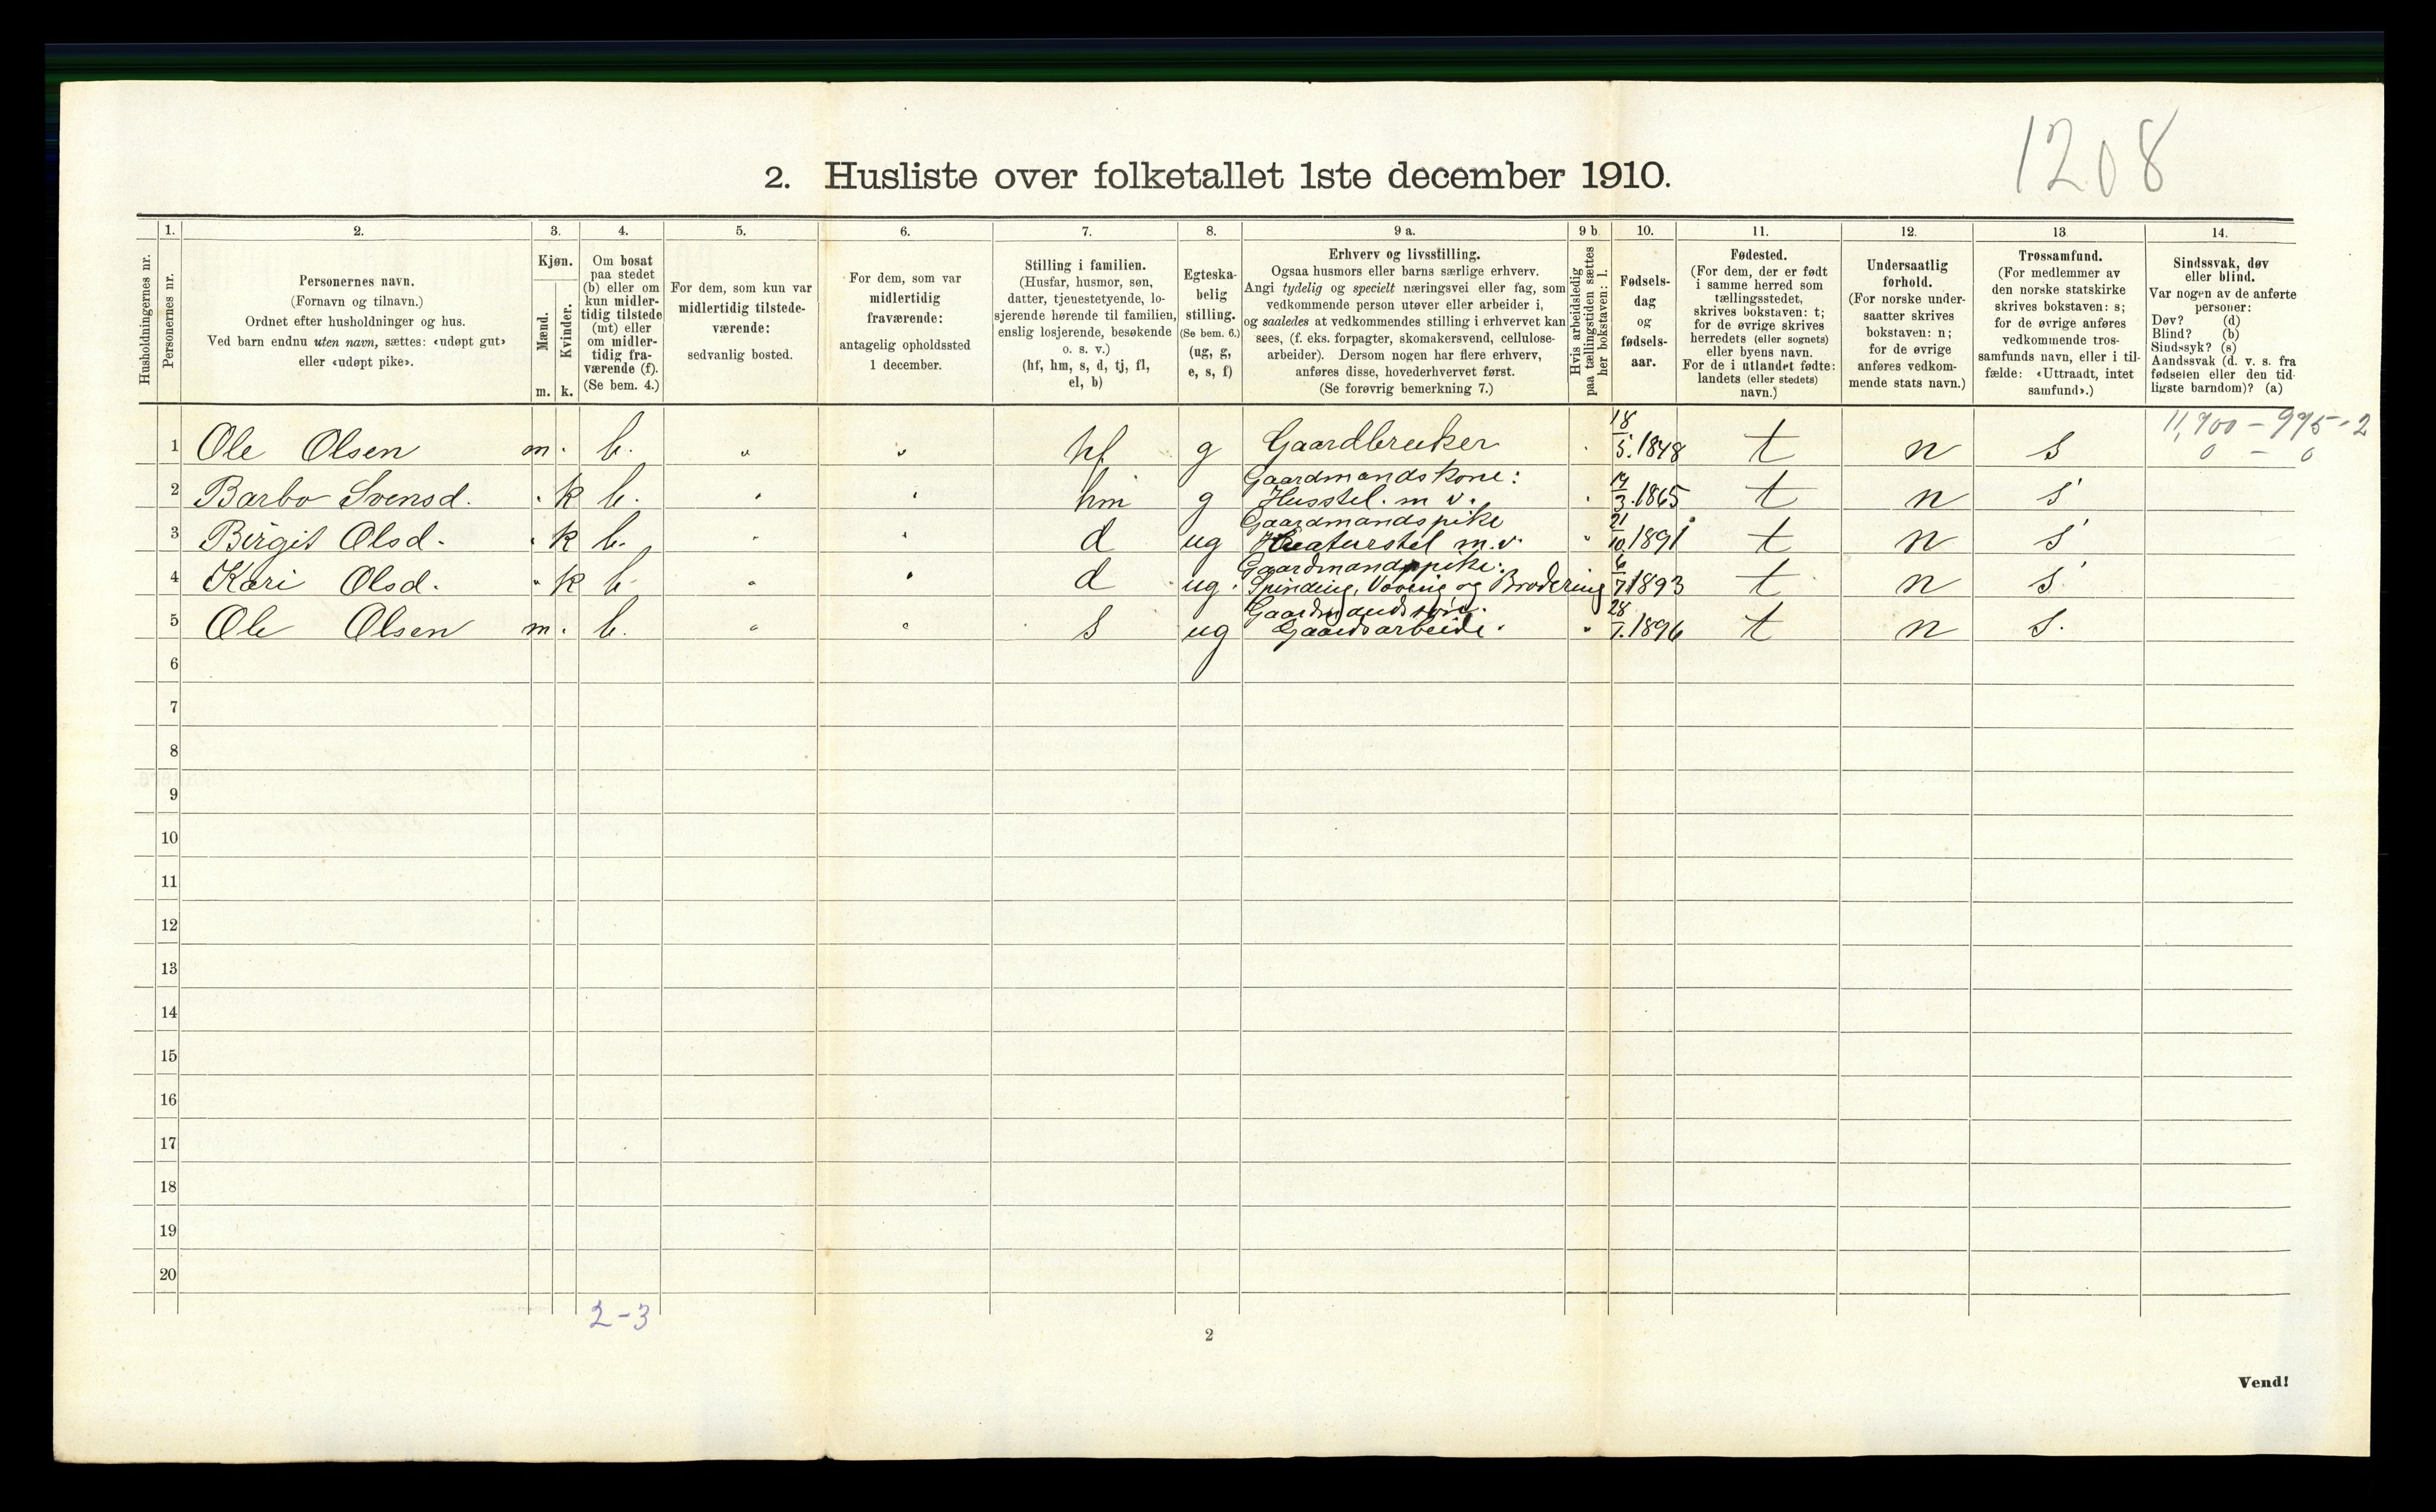 1208
2. Husliste over folketallet 1ste december 1910.
Husholdningernes nr.
1.
Personernes nr.
2.
Personernes navn.
(Fornavn og tilnavn.)
Ordnet efter husholdninger og hus.
Ved barn endnu uten navn, sættes: «udøpt gut»
eller «udøpt pike».
3.
Kjøn.
Mænd.
Kvinder.
m. k.
4.
Om bosat
paa stedet
(b) eller om
kun midler-
tidig tilstede
(mt) eller
om midler-
tidig fra-
værende (f).
(Se bem. 4.)
5.
For dem, som kun var
midlertidig tilstede-
værende:
sedvanlig bosted.
6.
For dem, som var
midlertidig
fraværende:
antagelig opholdssted
1 december.
7.
Stilling i familien.
(Husfar, husmor, søn,
datter, tjenestetyende, lo-
sjerende hørende til familien,
enslig losjerende, besøkende
o. s. v.)
(hf, hm, s, d, tj, fl,
el, b)
8.
Egteska-
belig
stilling.
(Se bem. 6.)
(ug, g,
e, s, f)
9 a.
Erhverv og livsstilling.
Ogsaa husmors eller barns særlige erhverv.
Angi tydelig og specielt næringsvei eller fag, som
vedkommende person utøver eller arbeider i,
og saaledes at vedkommendes stilling i erhvervet kan
sees, (f. eks. forpagter, skomakersvend, cellulose-
arbeider). Dersom nogen har flere erhverv,
anføres disse, hovederhvervet først.
(Se forøvrig bemerkning 7.)
9 b
Hvis arbeidsledig
paa tællingstiden sættes
her bokstaven: l.
10.
Fødsels-
dag
og
fødsels-
aar.
11.
Fødested.
(For dem, der er født
i samme herred som
tællingsstedet,
skrives bokstaven: t;
for de øvrige skrives
herredets (eller sognets)
eller byens navn.
For de i utlandet fødte:
landets (eller stedets)
navn.)
12.
Undersaatlig
forhold.
(For norske under-
saatter skrives
bokstaven: n;
for de øvrige
anføres vedkom-
mende stats navn.)
13
Trossamfund.
(For medlemmer av
den norske statskirke
skrives bokstaven: s;
for de øvrige anføres
vedkommende tros-
samfunds navn, eller i til-
fælde: «Uttraadt, intet
samfund».)
14.
Sindssvak, døv
eller blind.
Var nogen av de anførte
personer:
Døv? (d)
Blind? (b)
Sindssyk? (s)
Aandssvak (d. v. s. fra
fødselen eller den tid-
ligste barndom)? (a)
11,900 - 995 - 2
0 - 0
1 Ole Olsen m. b. " " hf g Gaardbruker 18/5.1848 t n s
2 Barbo Svensd. k b. hm g Gaardmandskone: Husstel. m v. 1865 t n s
3 Birgit Olsd. k b. d ug Gaardmandspike Kreaturstel m.v. " 21/10.1891 t n s
4 Kari Olsd. " k b. " d ug Gaardmandspike: Spinding, Væving og Brodering 6/7 1893 t n s
5 Ole Olsen m. b. " s ug Gaardmandssøn. Gaardsarbeide. " 28/1.1896 t n s.
6
7
8
9
10
11
12
13
14
15
16
17
18
19
20
2-3
2
Vend!